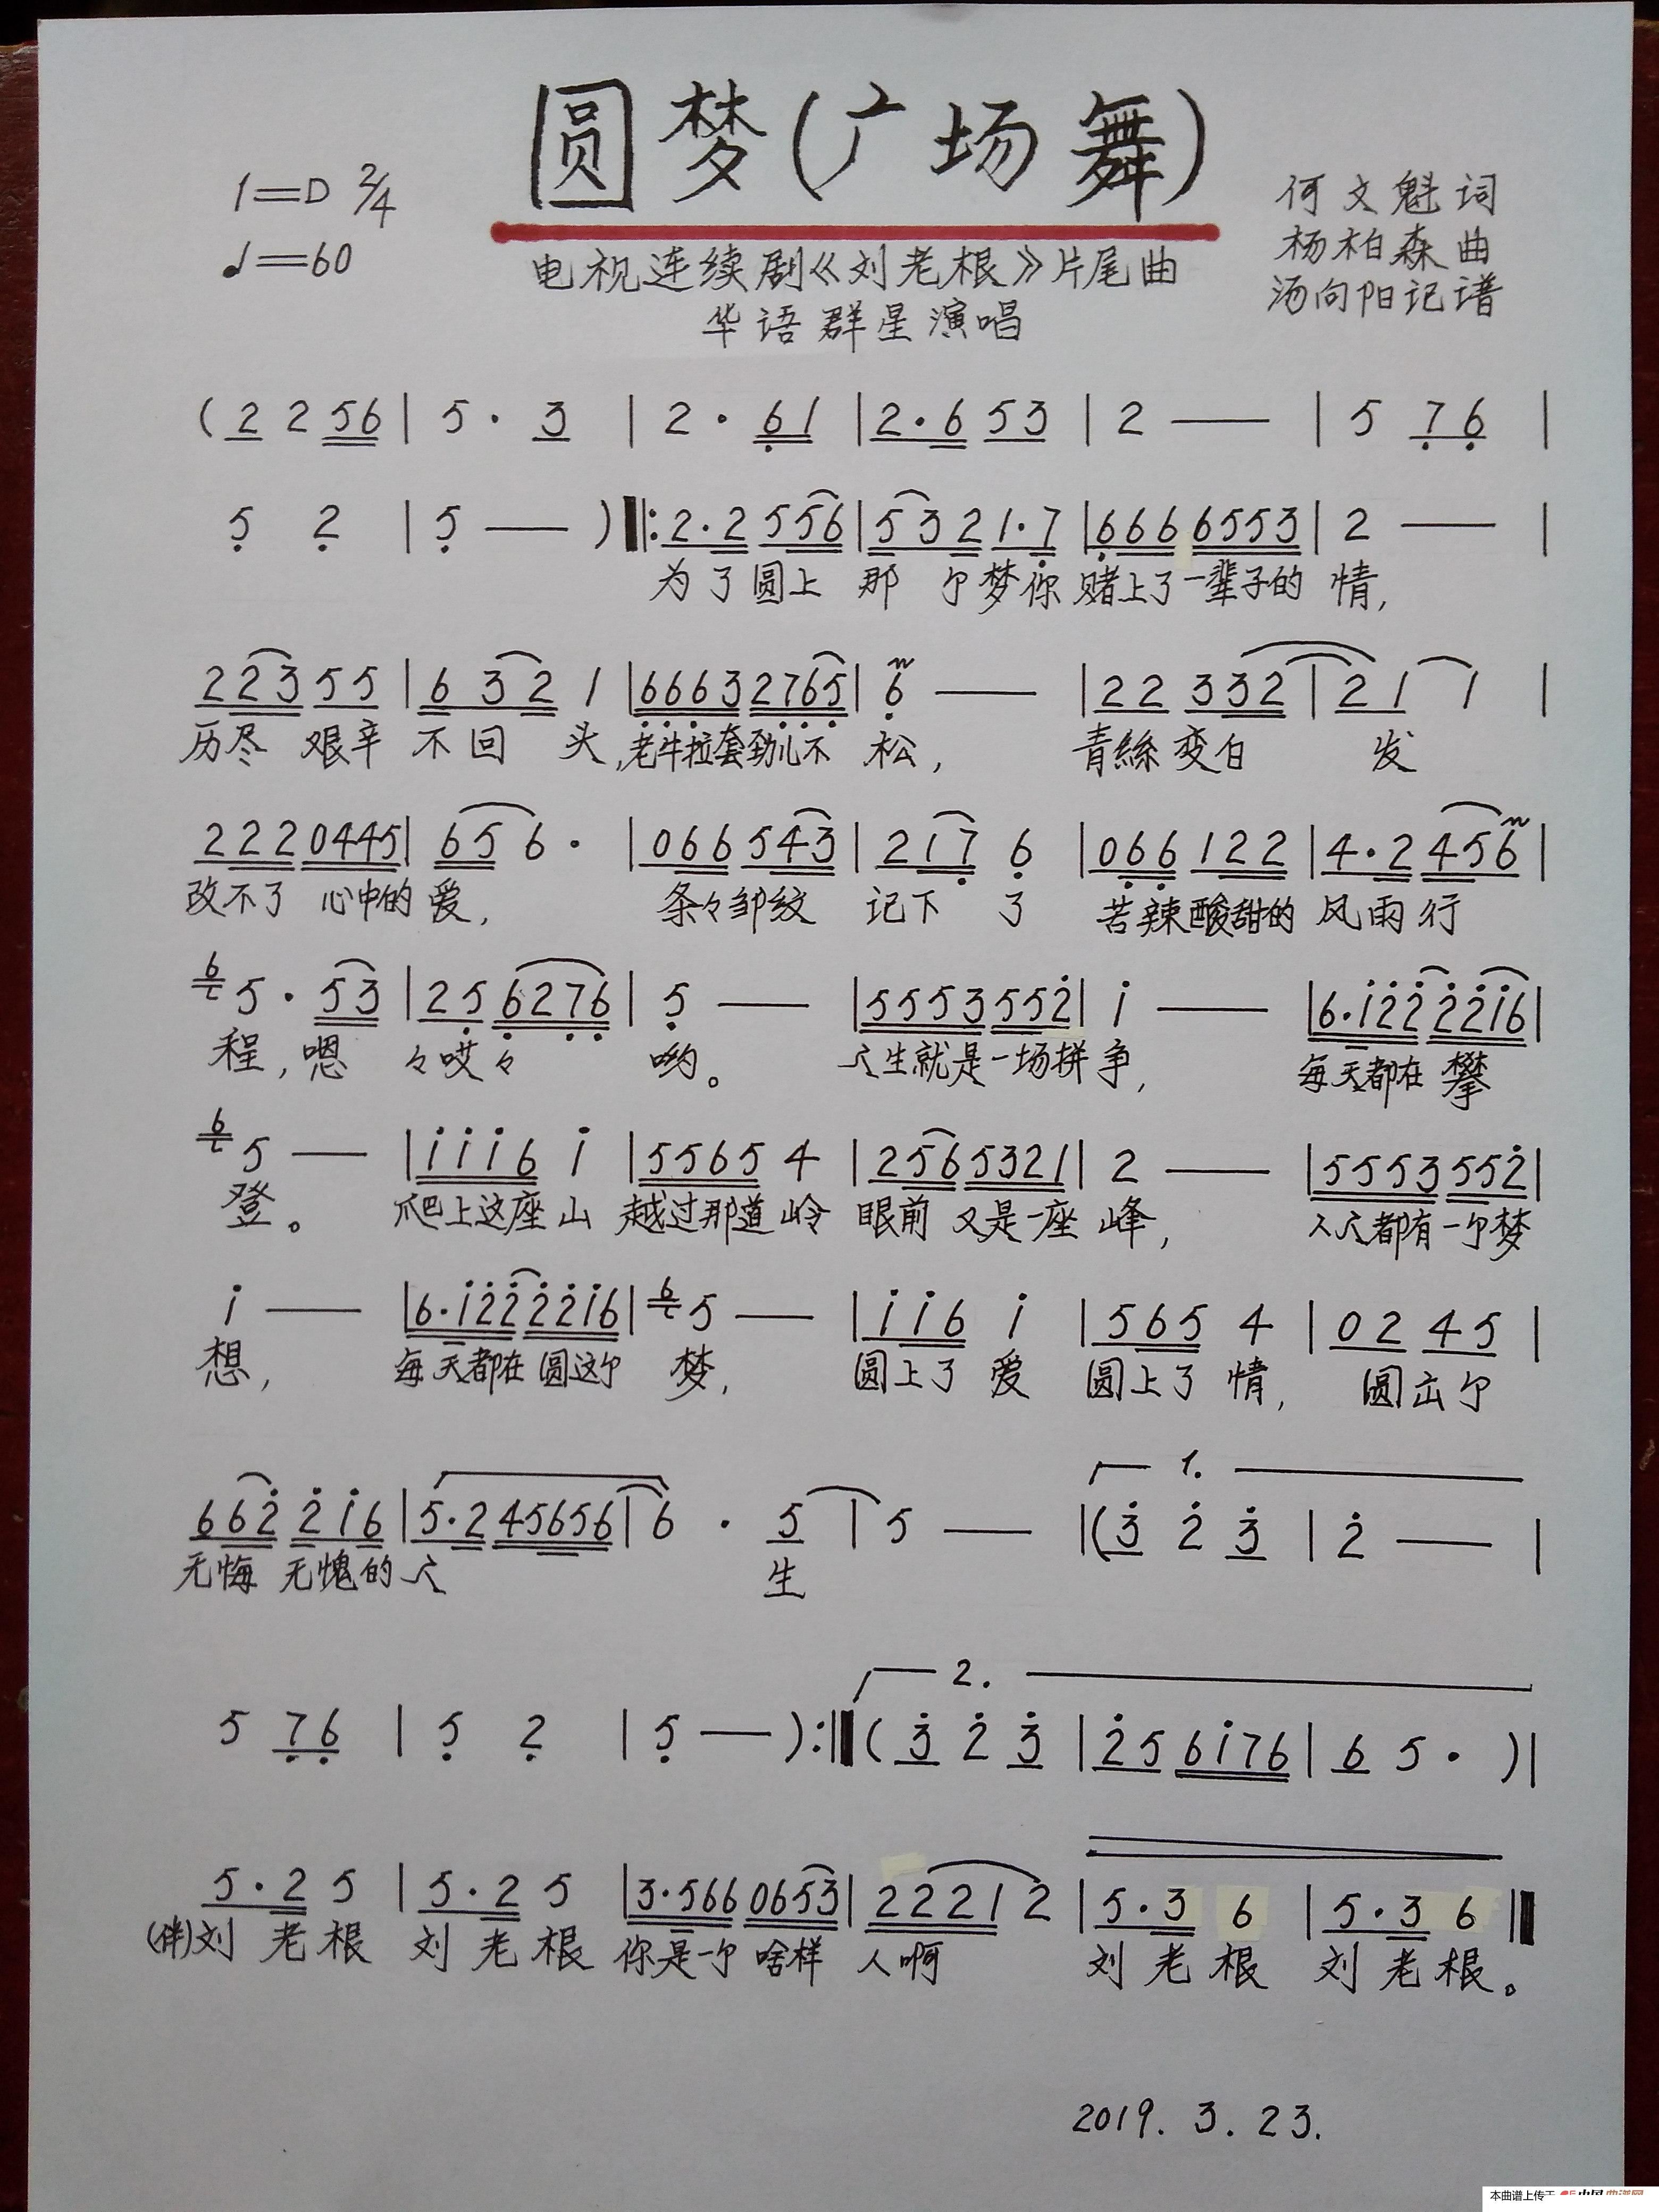 圆梦(广场舞)
1=D 2/4
♩=60
何文魁词
杨柏森曲
汤向阳记谱
电视连续剧《刘老根》片尾曲
华语群星演唱
(2 2 56 | 5· 3 | 2· 6̣1 | 2·6 53 | 2 — | 5 7̣6̣ |
5̣ 2̣ | 5̣ — )‖: 2·2 556 | 532 1·7̣ | 6̣66 6553 | 2 — |
为了圆上 那 个梦你 赌上了一辈子的 情,
223 55 | 6 32 1 | 6̣6̣6̣3 276̣5̣ | 6̣ — | 22 332 | 21 1 |
历尽 艰辛 不回 头,老牛拉套劲儿不 松, 青絲变白 发
222 0445 | 65 6· | 066 543 | 217̣ 6̣ | 06̣6̣ 122 | 4·2 456 |
改不了 心中的 爱, 条々邹纹 记下 了 苦辣酸甜的 风雨行
6 5· 53 | 25̣ 6̣27̣6̣ | 5̣ — | 5553 552̇ | 1̇ — | 6·1̇2̇2̇ 2̇2̇1̇6 |
程,嗯 々哎々 哟。 亽生就是一场拼 争, 每天都在 攀
6 5 — | 1̇1̇1̇6 1̇ | 5565 4 | 256 5321 | 2 — | 5553 552̇ |
登。 爬上这座山 越过那道岭 眼前 又是一座 峰, 人亽都有一个梦
1̇ — | 6·1̇2̇2̇ 2̇2̇1̇6 | 6 5 — | 1̇1̇6 1̇ | 565 4 | 02 45 |
想, 每天都在 圆这个 梦, 圆上了 爱 圆上了 情, 圆出个
1.
662̇ 2̇1̇6 | 5·2 45656 | 6 · 5 | 5 — | (3̇ 2̇ 3̇ | 2̇ — |
无悔 无愧的 亽 生
2.
5 7̣6̣ | 5̣ 2̣ | 5̣ — ):‖ (3̇ 2̇ 3̇ | 2̇5 61̇76 | 6 5· )|
5·2 5 | 5·2 5 | 3·566 0653 | 2221 2 | 5·3 6 | 5·3 6 ‖
(伴)刘 老根 刘 老根 你是一个 啥样 人啊 刘 老 根 刘 老根。
2019. 3. 23.